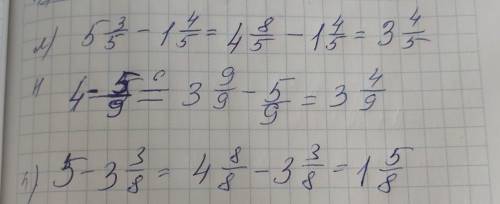 м) 5 3/5 - 1 4/5 = 4 8/5 - 1 4/5 = 3 4/5
н 4 - 5/9 = 3 9/9 - 5/9 = 3 4/9
п) 5 - 3 3/8 = 4 8/8 - 3 3/8 = 1 5/8